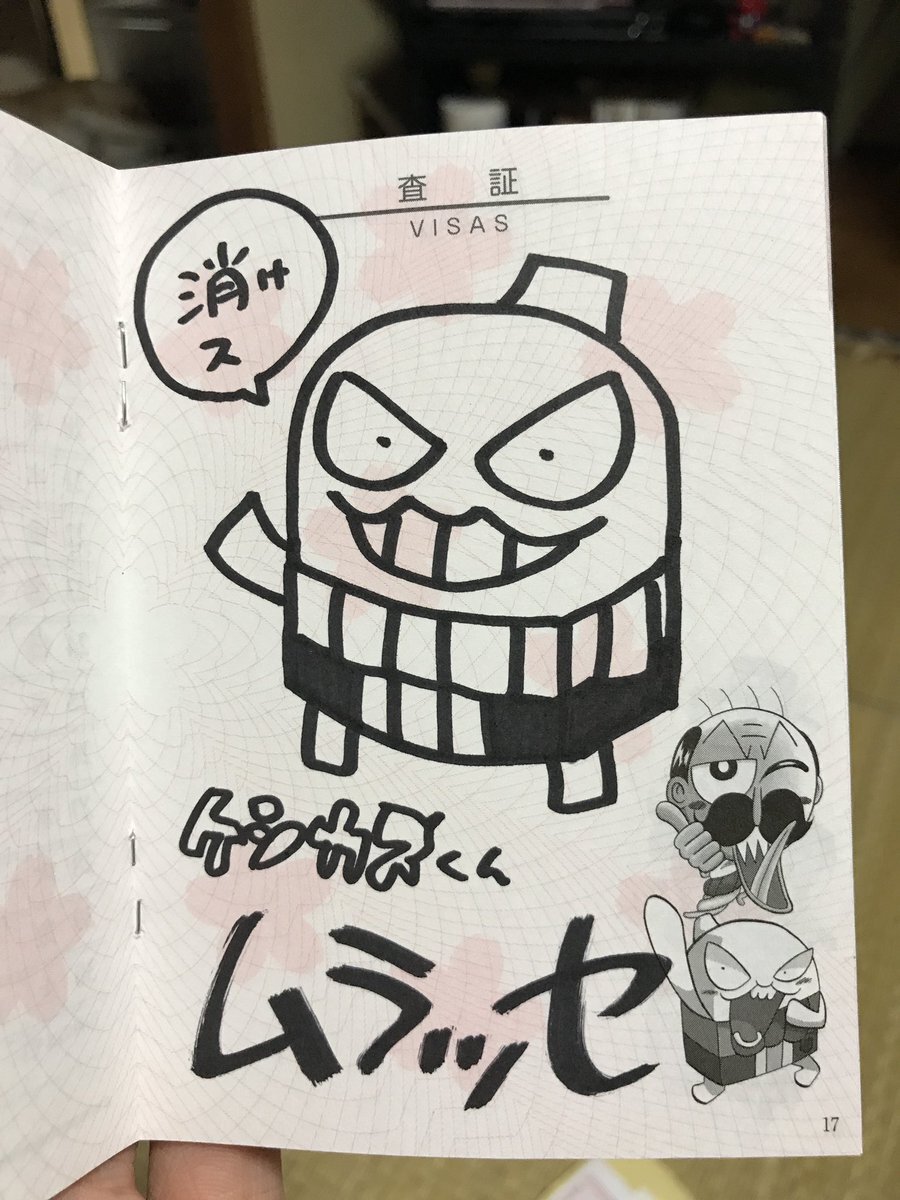 査証
VISAS
消け
ス
ケシカスくん
ムラッセ
17